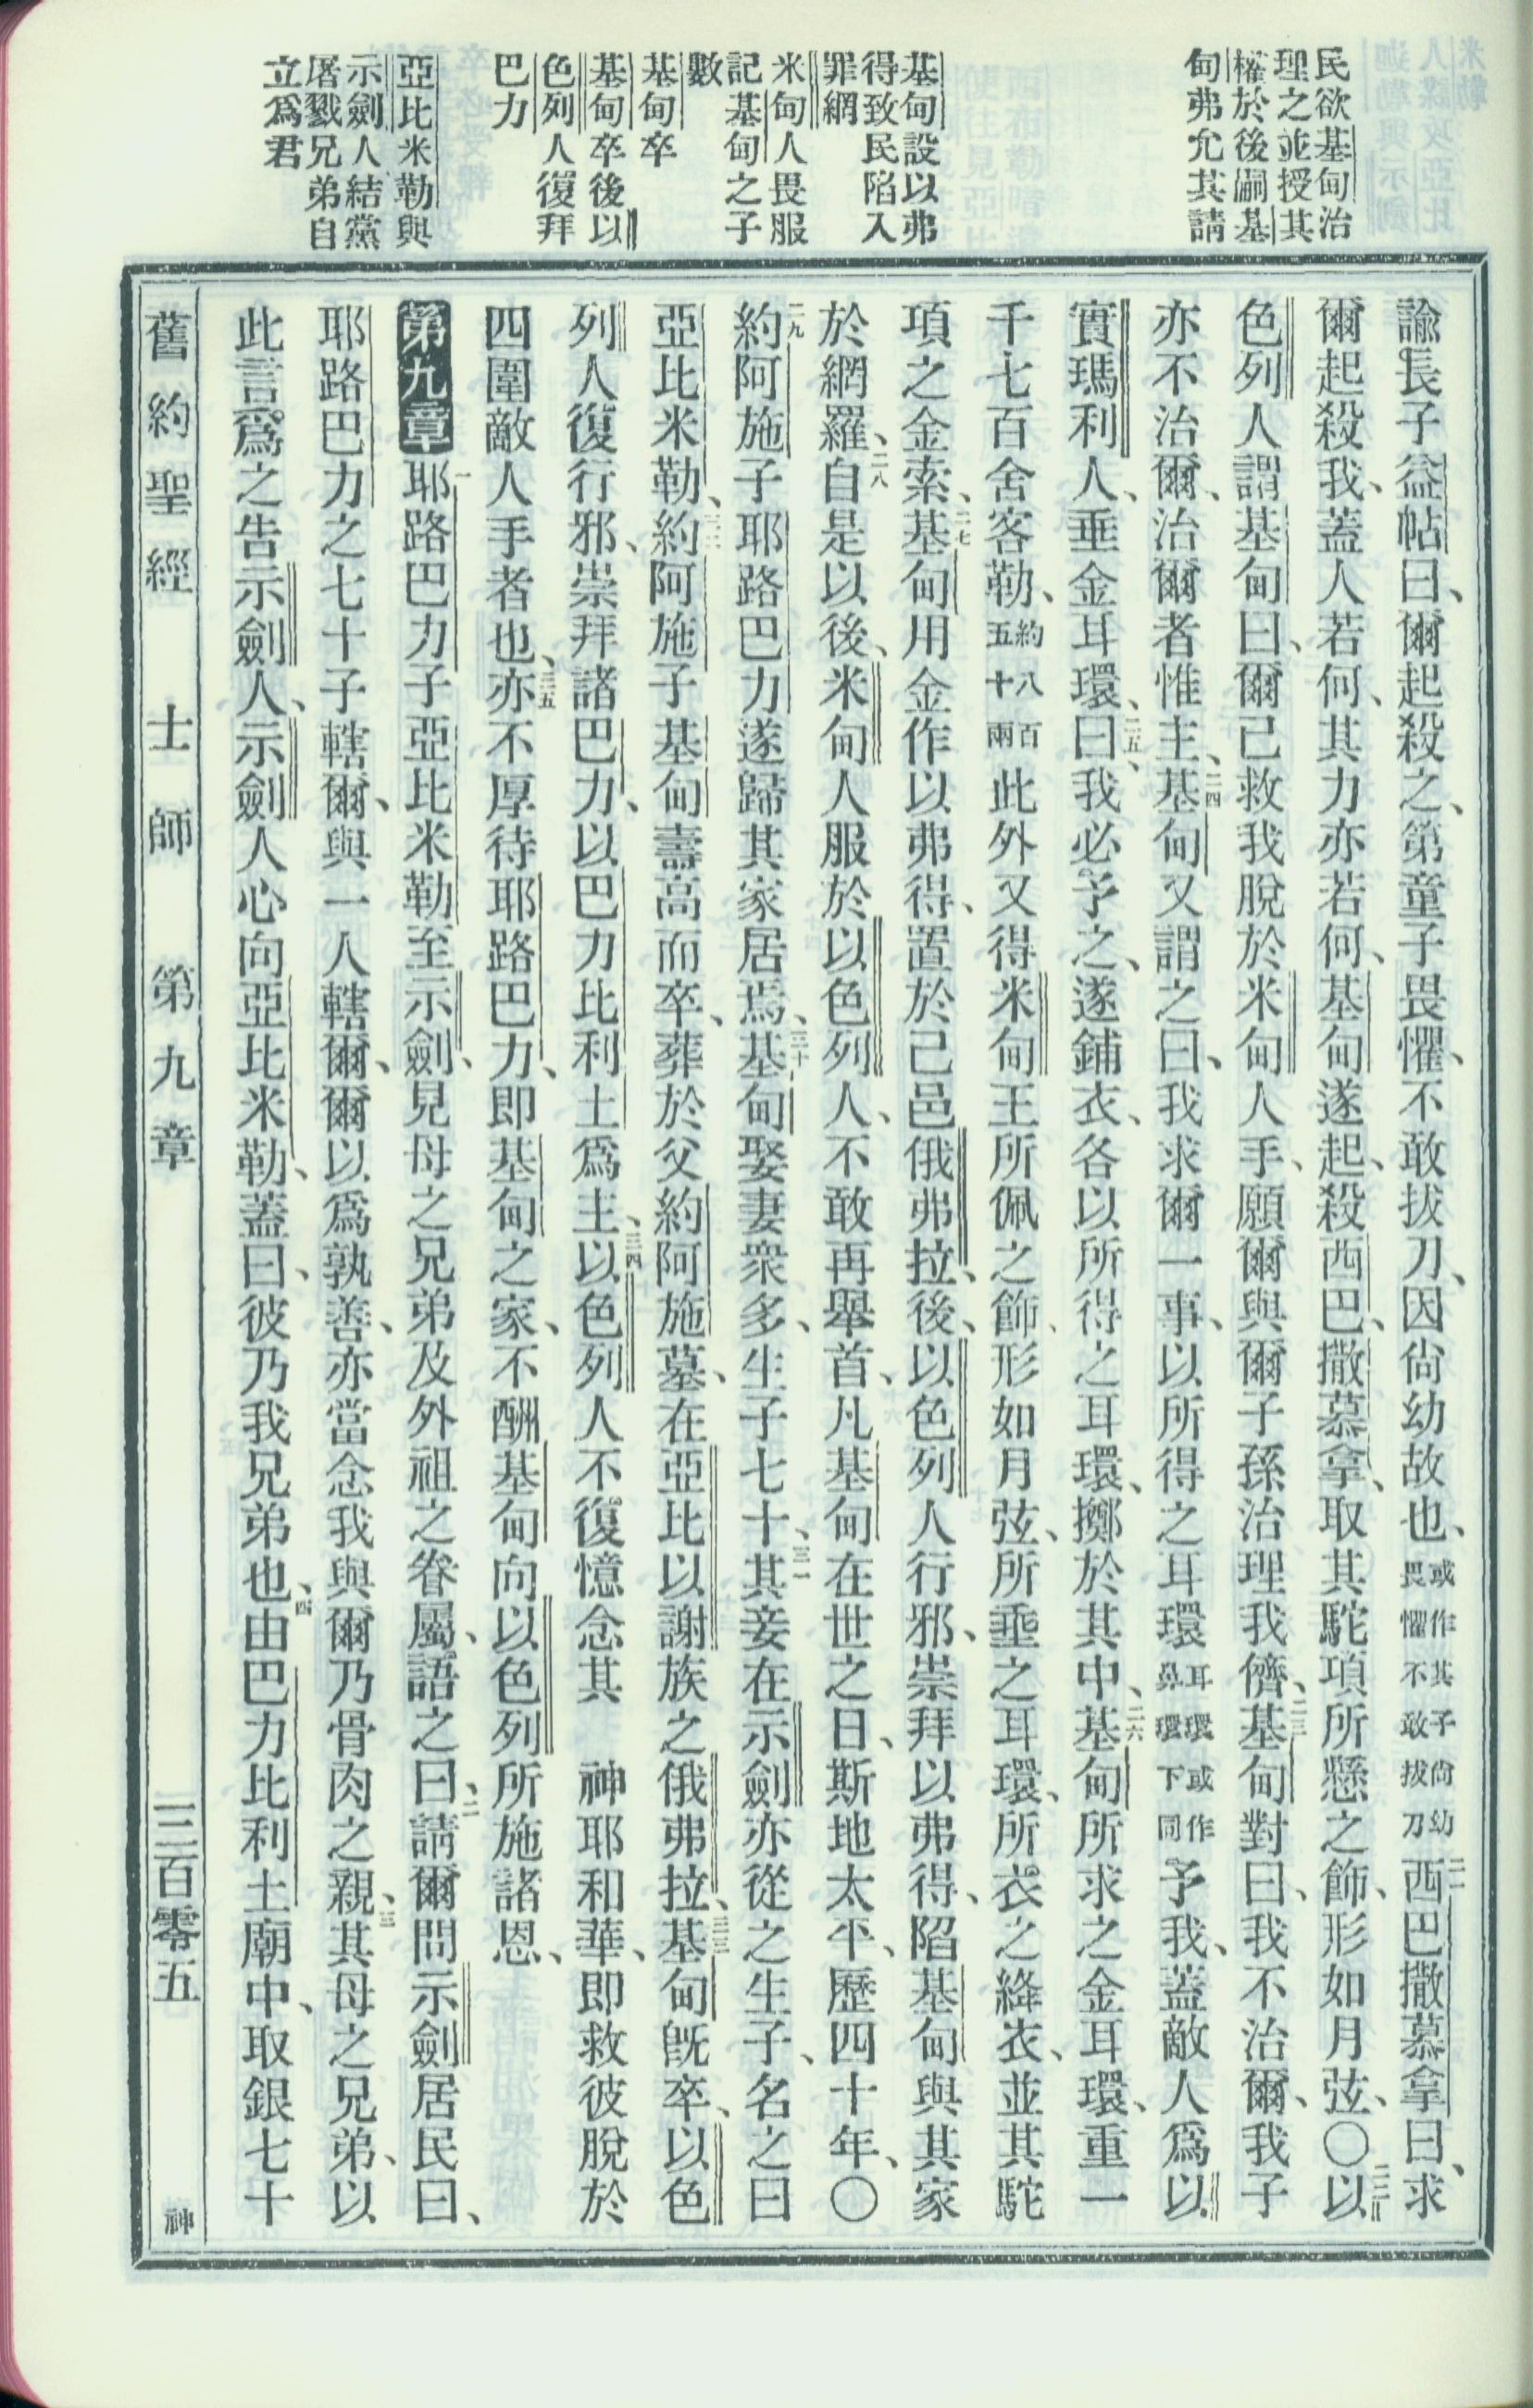 民欲基甸治
理之並授其
權於後嗣基
甸弗允其請
基甸設以弗
得致民陷入
罪網
米甸人畏服
記基甸之子
數
基甸卒
基甸卒後以
色列人復拜
巴力
亞比米勒與
示劍人結黨
屠戮兄弟自
立為君
諭長子益帖曰、爾起殺之、第童子畏懼、不敢拔刀、因尙幼故也、或作其子尙幼畏懼不敢拔刀二一西巴撒慕拿曰、求
爾起殺我、蓋人若何、其力亦若何、基甸遂起、殺西巴、撒慕拿、取其駝項所懸之飾、形如月弦、〇二二以
色列人謂基甸曰、爾已救我脫於米甸人手、願爾與爾子孫治理我儕、二三基甸對曰、我不治爾、我子
亦不治爾、治爾者惟主、二四基甸又謂之曰、我求爾一事、以所得之耳環耳環或作鼻環下同予我、蓋敵人爲以
實瑪利人、垂金耳環、二五曰、我必予之、遂鋪衣、各以所得之耳環、擲於其中、二六基甸所求之金耳環、重一
千七百舍客勒、約八百五十兩此外又得米甸王所佩之飾、形如月弦、所垂之耳環、所衣之絳衣、並其駝
項之金索、二七基甸用金作以弗得、置於己邑俄弗拉、後、以色列人行邪、崇拜以弗得、陷基甸與其家
於網羅、二八自是以後、米甸人服於以色列人、不敢再舉首、凡基甸在世之日、斯地太平、歷四十年、〇
二九約阿施子耶路巴力遂歸其家居焉、三十基甸娶妻衆多、生子七十、三一其妾在示劍亦從之生子、名之曰
亞比米勒、三二約阿施子基甸壽高而卒、葬於父約阿施墓、在亞比以謝族之俄弗拉、三三基甸旣卒、以色
列人復行邪、崇拜諸巴力、以巴力比利土爲主、三四以色列人不復憶念其　神耶和華、即救彼脫於
四圍敵人手者也、三五亦不厚待耶路巴力、即基甸之家、不酬基甸向以色列所施諸恩、
第九章一耶路巴力子亞比米勒至示劍、見母之兄弟及外祖之眷屬、語之曰、二請爾問示劍居民曰、
耶路巴力之七十子轄爾、與一人轄爾、爾以爲孰善、亦當念我與爾乃骨肉之親、三其母之兄弟、以
此言爲之告示劍人、示劍人心向亞比米勒、蓋曰、彼乃我兄弟也、四由巴力比利土廟中、取銀七十
舊約聖經　士師　第九章　三百零五　神